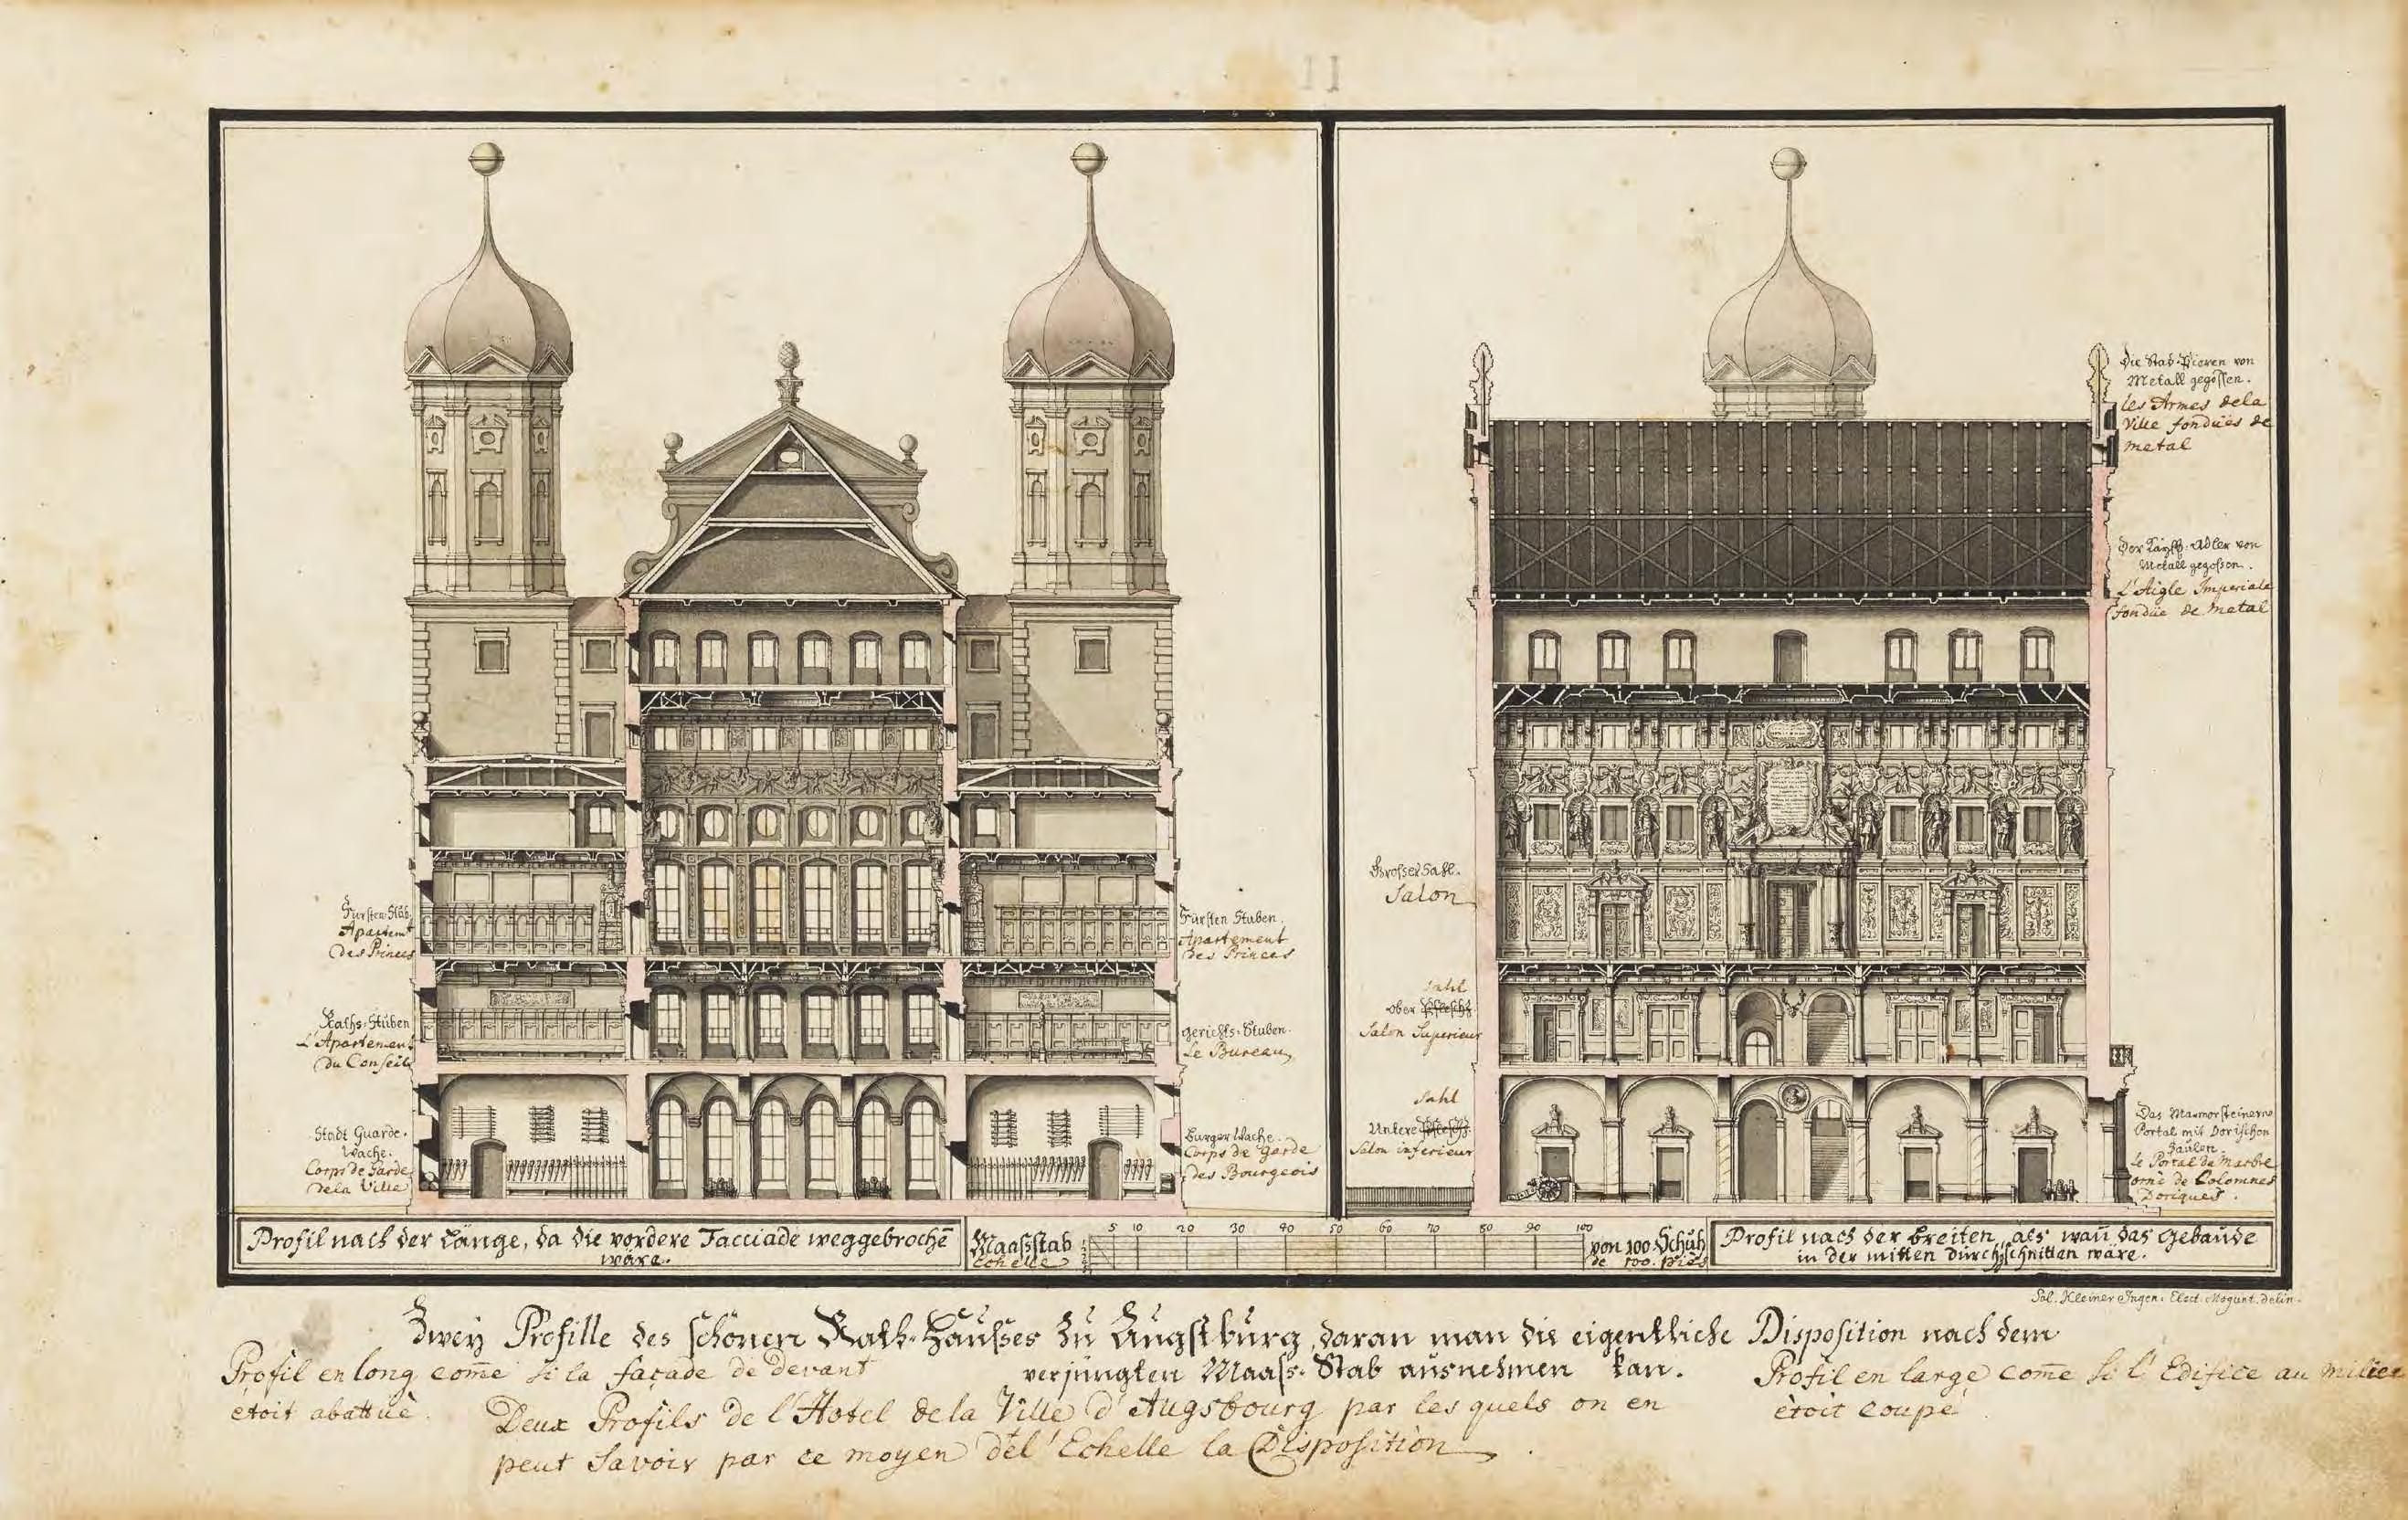 11
Die Stad-Pieren von
Metall gegossen.
Les Armes dela
Ville fondües de
metal
Der Kayss. Adler von
Metall gegossen.
L'Aigle Imperiale
fondüe de metal
Grosser Sahl.
Salon
Sahl
ober
Salon Superieur
Sahl
Untere
Salon inferieur
Das Marmorsteinerne
Portal mit Dorischen
Säulen.
Le Portal de Marbre
orné de Colomnes
Doriques.
Fürsten-Stub.
Apartemt
des Princes
Raths-Stuben
L'Apartement
du Conseils
Stadt Guarde.
Wache.
Corps de Garde
dela Ville
Fürsten Stuben.
Apartement
des Princes
gerichts-Stuben.
Le Bureau
Burger Wache.
Corps de Garde
des Bourgeois
Profil nach der Länge, da die vordere Facciade weggebrochē
wäre.
Maasstab
Echelle
5 10 20 30 40 50 60 70 80 90 100
von 100. Schuh
de 100. piès
Profil nach der breiten, als wañ das Gebäude
in der mitten durchschnitten wäre.
Sal. Kleiner Ingen. Elect. Mogunt. delin.
Zwey Profille des schönen Rath-Hausses zu Augsburg, daran man die eigentliche Disposition nach dem
verjüngten Maass-Stab ausnehmen kan.
Profil en long com̄e si la façade de devant
etoit abattüe.
Profil en large com̄e si l'Edifice au milieu
ètoit coupé
Deux Profils de l'Hotel dela Ville d'Augsbourg par les quels on en
peut savoir par ce moyen del'Echelle la Disposition.